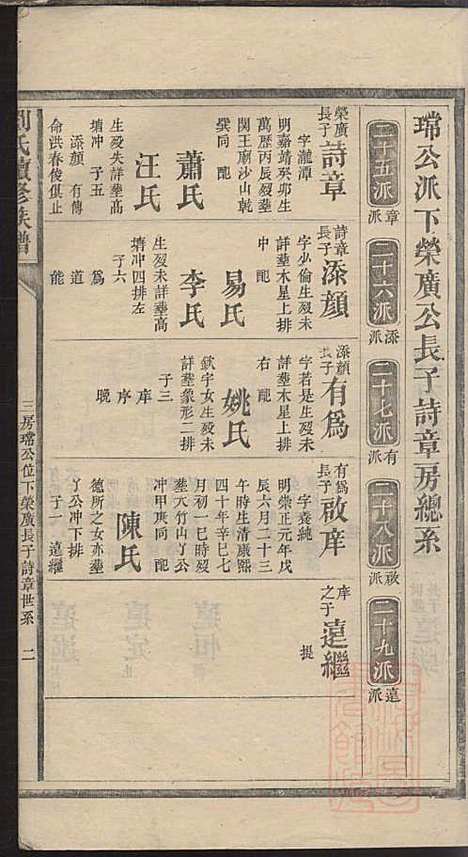 瑺公派下榮廣公長子詩章房總系
二十五派
章派
二十六派
添派
二十七派
有派
二十八派
啟派
二十九派
遠派
榮廣長子
詩章
字瀧潭
明嘉靖癸卯生
萬歷丙辰歿塟
関王廟沙山乾
㢲同 配
蕭氏
汪氏
生歿失詳塟高
塘冲 子五
添顏 有傳
命洪春俊俱止
詩章長子
添顏
字少倫生歿未
詳塟木星上排
中 配
易氏
李氏
生歿未詳塟高
塘冲四排左
子六
為
道
能
添顏長子
有為
字若是生歿未
詳塟木星上排
右 配
姚氏
欽宇女生歿未
詳塟象形二排
子三
庠
序
晚
有為長子
啟庠
字養純
明崇正元年戊
辰六月二十三
午時生清康熙
四十年辛巳七
月初一巳時歿
塟大竹山丫公
冲甲庚同 配
陳氏
德所之女亦塟
丫公冲下排
子一 遠繼
庠之子
遠繼
提
劉氏續修族譜
三房瑺公位下榮廣長子詩章世系 二